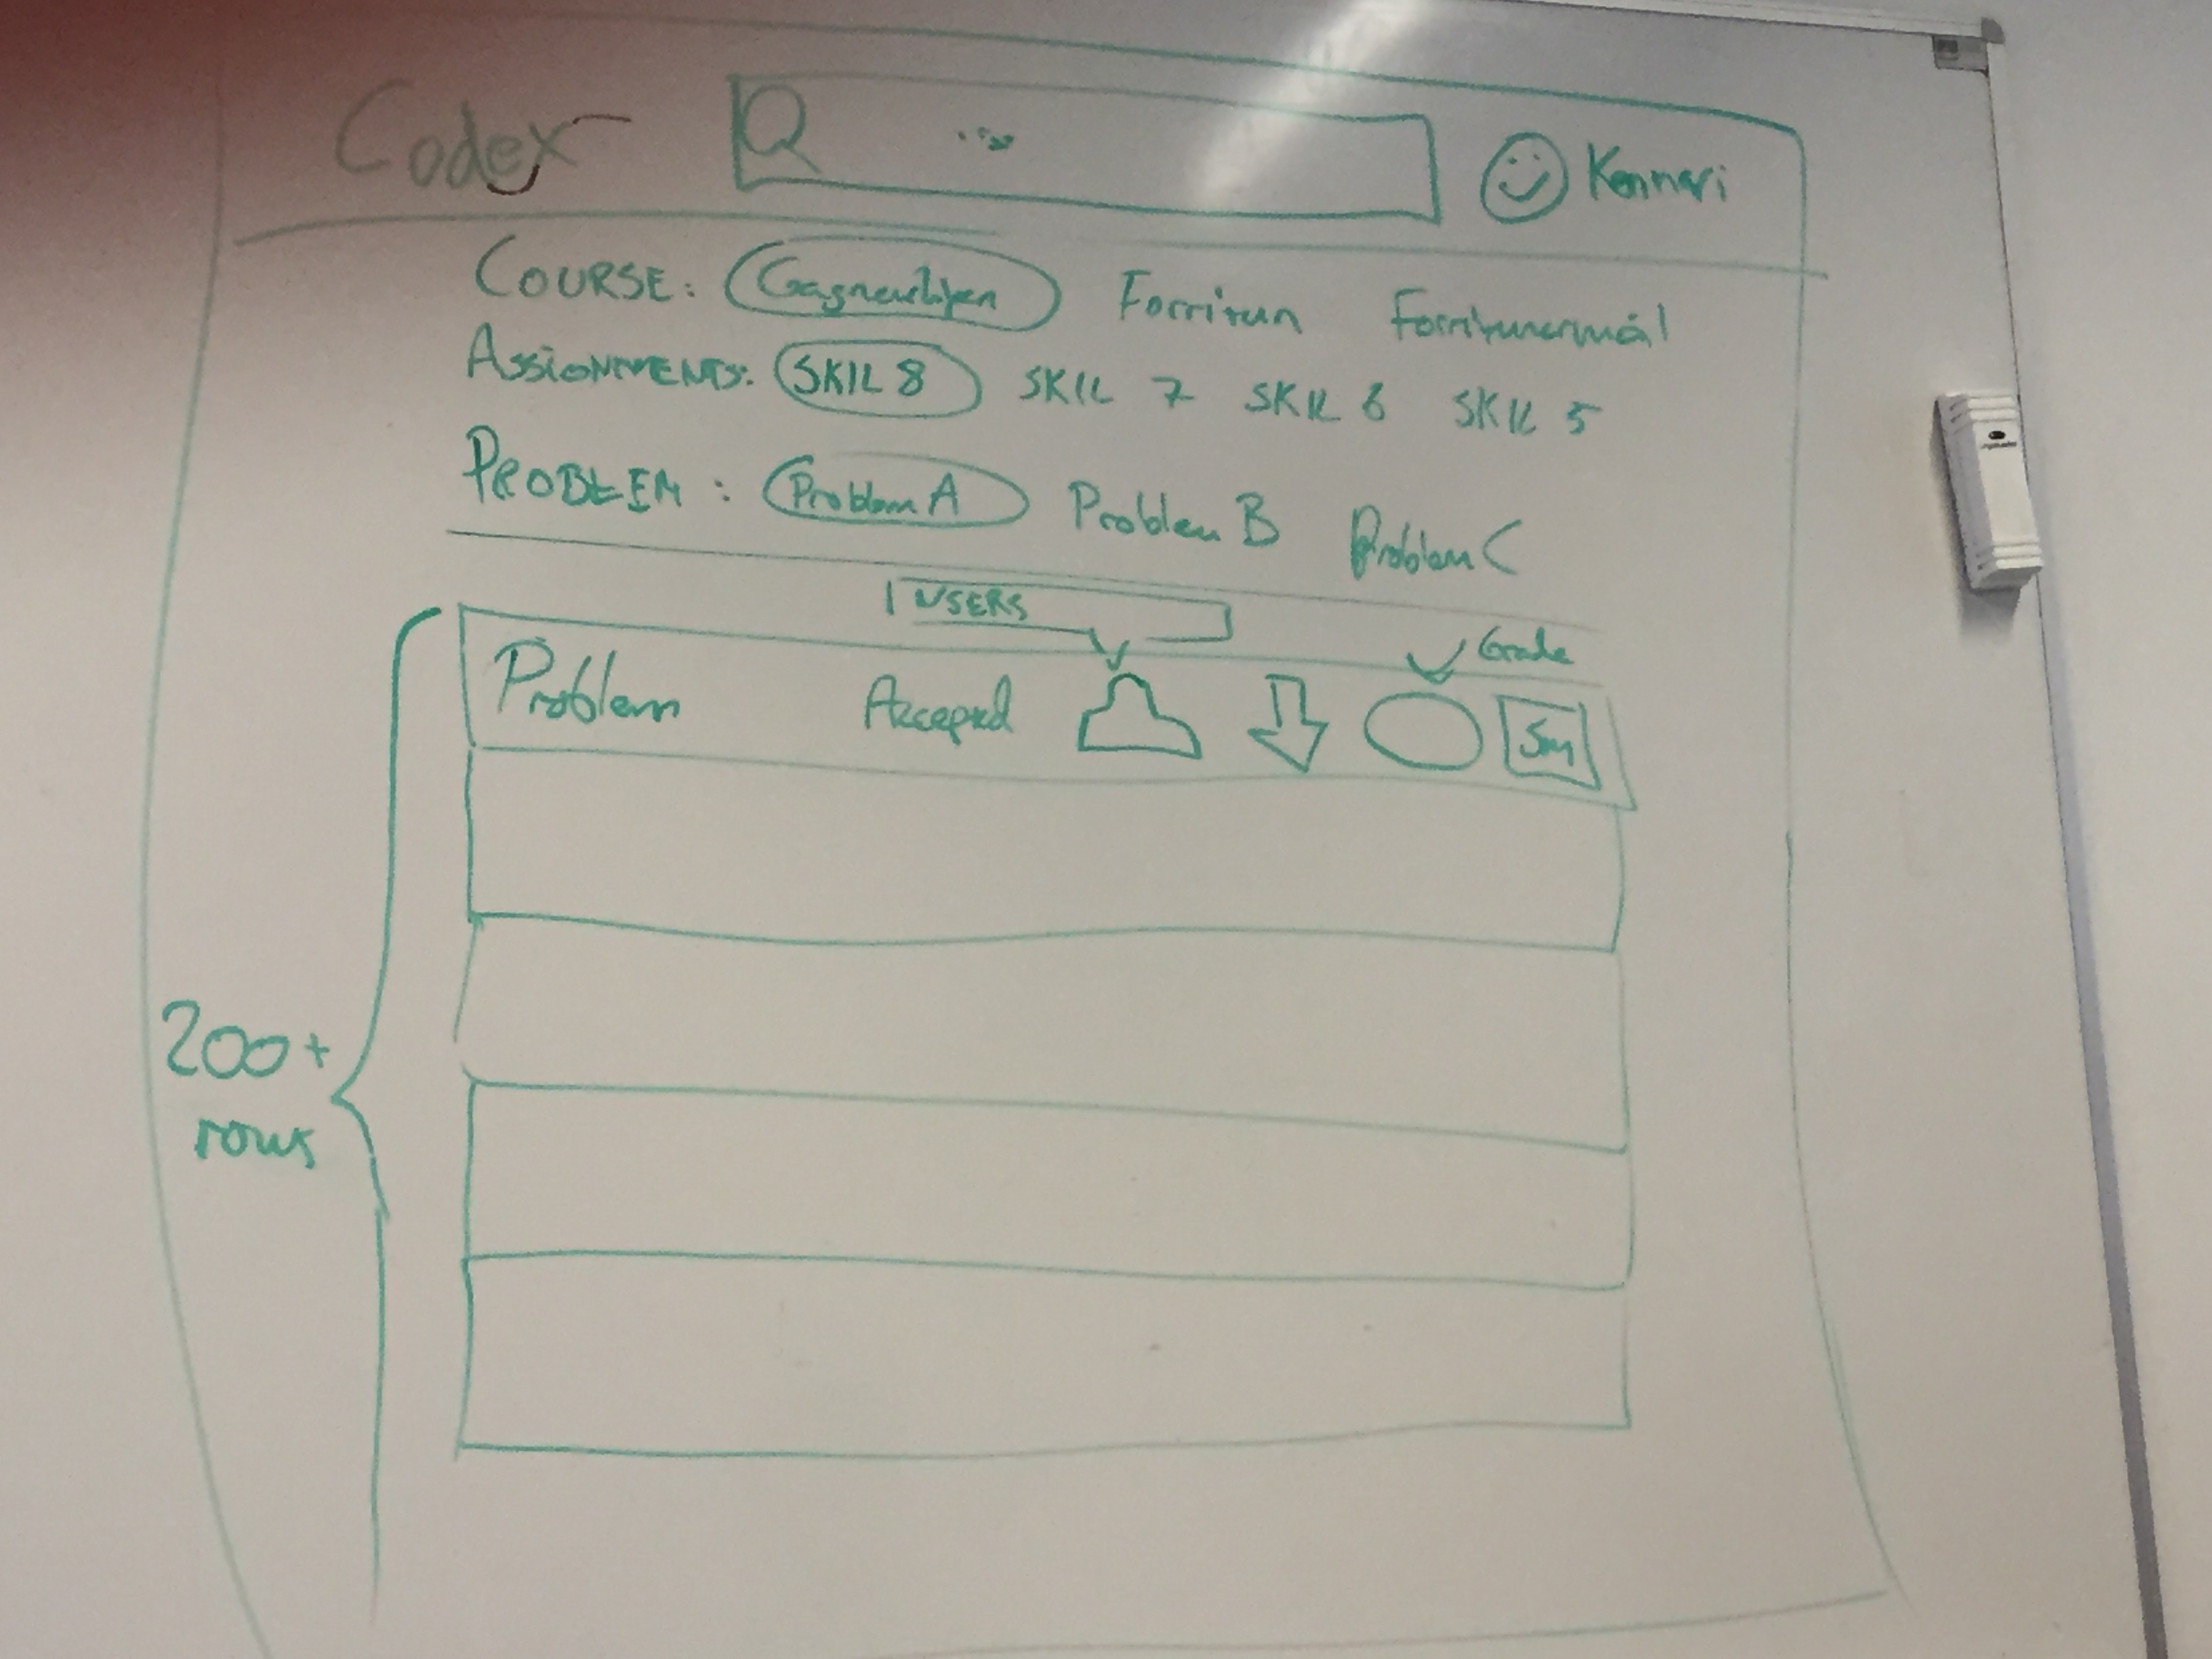 Codex
Kennari
COURSE: Forritun Forritunarmál
ASSIGNMENTS: SKIL 8 SKIL 7 SKIL 6 SKIL 5
PROBLEM: Problem A Problem B Problem C
USERS
Grade
Problem Accepted 5m
200+
rows